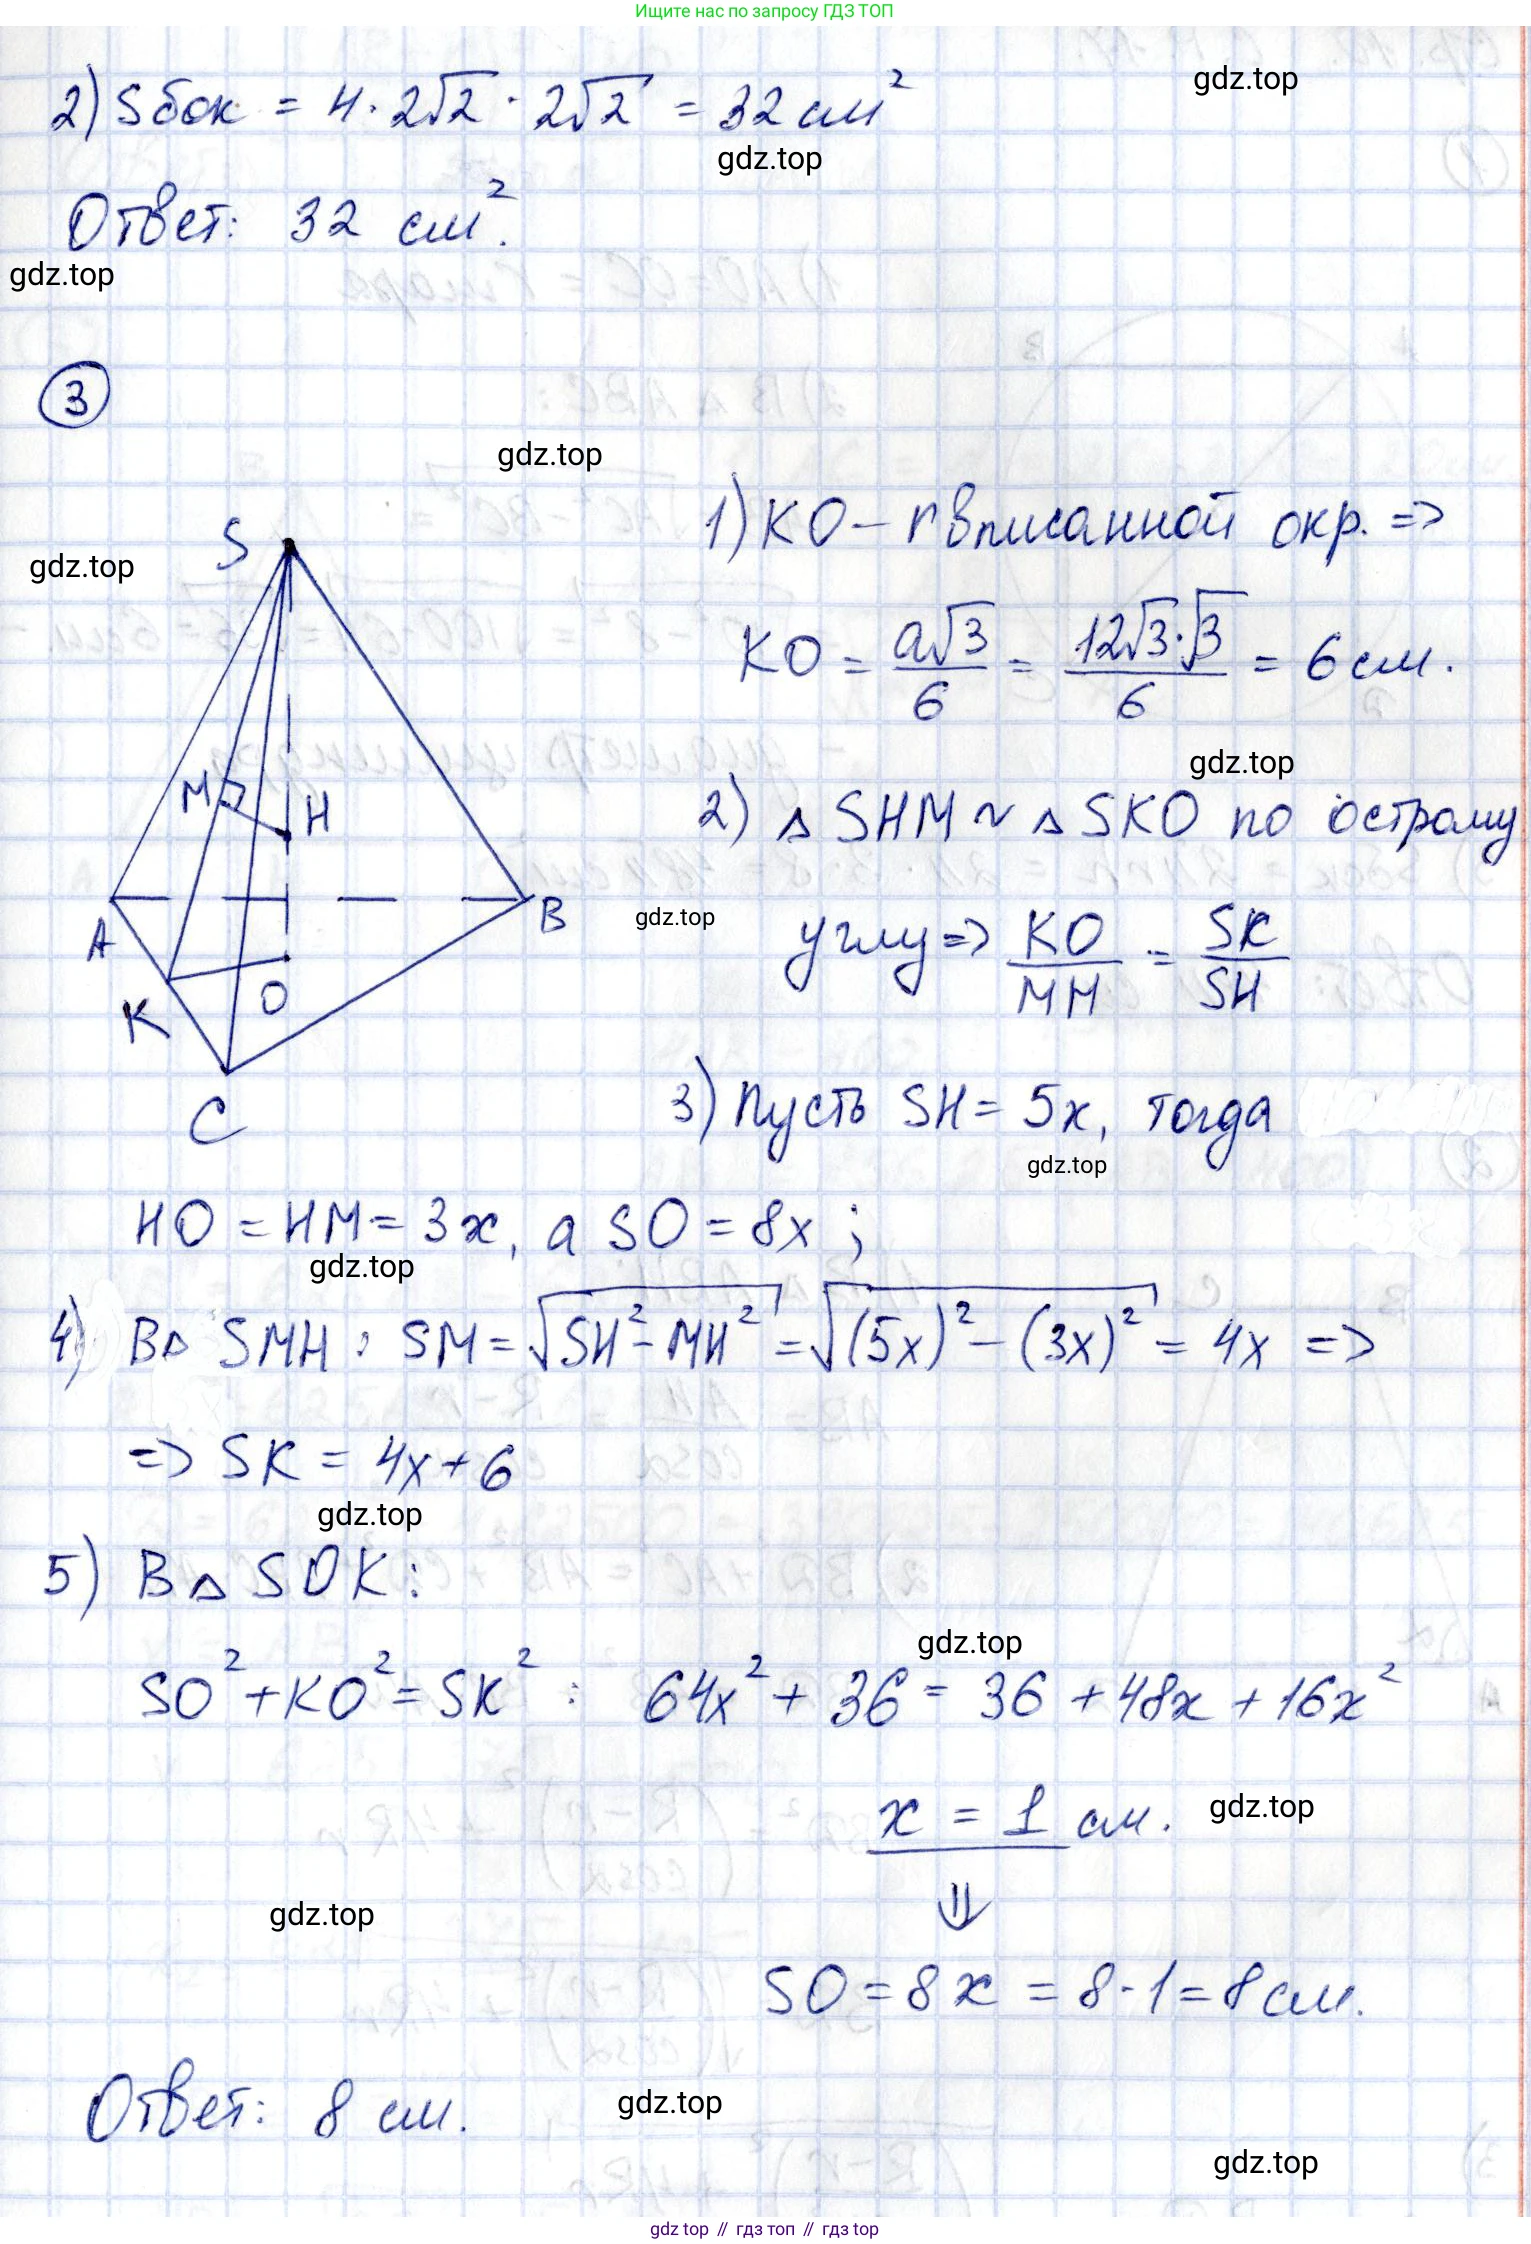 Ищите нас по запросу ГДЗ ТОП
gdz.top
2) Sбок = 4 · 2√2 · 2√2 = 32 см²
gdz.top
Ответ: 32 см².
gdz.top
3
gdz.top
S
gdz.top
1) KO – r вписанной окр. =>
KO = a√3/6 = 12√3·√3/6 = 6 см.
gdz.top
M
H
2) △ SHM ~ △ SKO по острому
A
B
gdz.top
углу => KO/MH = SK/SH
K
O
C
3) Пусть SH = 5x, тогда
gdz.top
HO = HM = 3x, а SO = 8x ;
gdz.top
4) В △ SMH : SM = √(SH² – MH²) = √((5x)² – (3x)²) = 4x =>
=> SK = 4x + 6
gdz.top
5) В △ SOK :
gdz.top
SO² + KO² = SK² : 64x² + 36 = 36 + 48x + 16x²
x = 1 см.
gdz.top
⇓
gdz.top
SO = 8x = 8 · 1 = 8 см.
Ответ: 8 см.
gdz.top
gdz.top
gdz top // гдз топ // гдз top